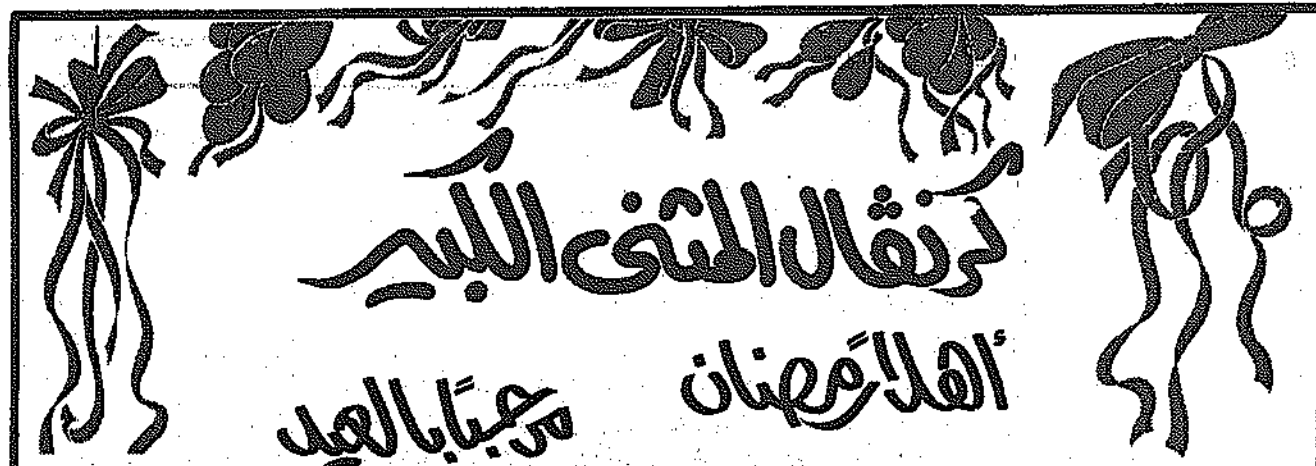 كرنڤال المثنى الكبير
أهلاً رمضان
مرحبًا بالعيد